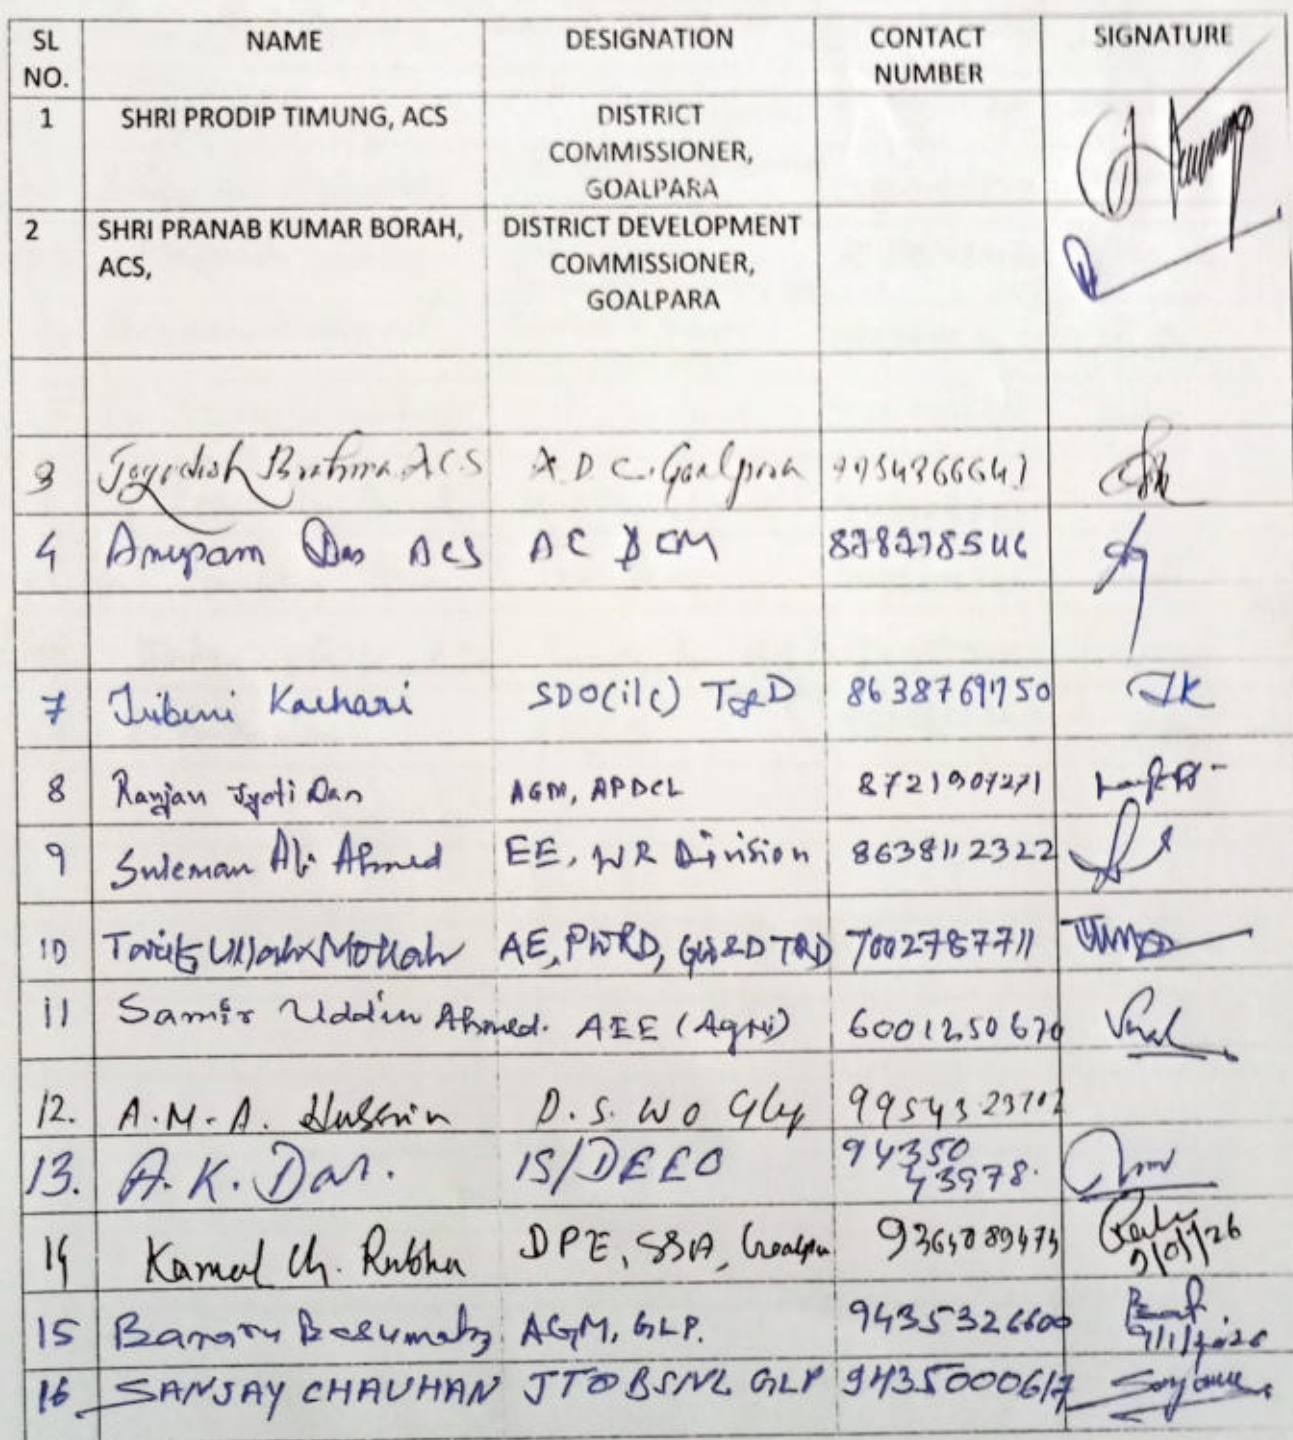 SL NO. NAME DESIGNATION CONTACT NUMBER SIGNATURE
1 SHRI PRODIP TIMUNG, ACS DISTRICT COMMISSIONER, GOALPARA
2 SHRI PRANAB KUMAR BORAH, ACS, DISTRICT DEVELOPMENT COMMISSIONER, GOALPARA
3 Jogodish Brahma ACS A D C. Goalpara
4 Anupam Das ACS AC DCM
7 Tribeni Kachari SDO(ilc) T&D TK
8 Ranjan Jyoti Das AGM, APDCL 8721907271
9 Suleman Ali Ahmed EE, WR Division 8638112322
10 Tarik Ullah Mollah AE, PWRD, TRD 7002787711
11 Samir Uddin Ahmed. AEE (Agri) 6001250670
12. A.M.A. Hussain D.S.WO Glp
13. A.K. Das. IS/DEEO 94350 43978.
14 Kamal Ch. Rabha DPE, SSA, Goalpara
15 Basumatary AGM, GLP. 9435326600 9/1/2026
16 SANJAY CHAUHAN JTO BSNL GLP 9435000617